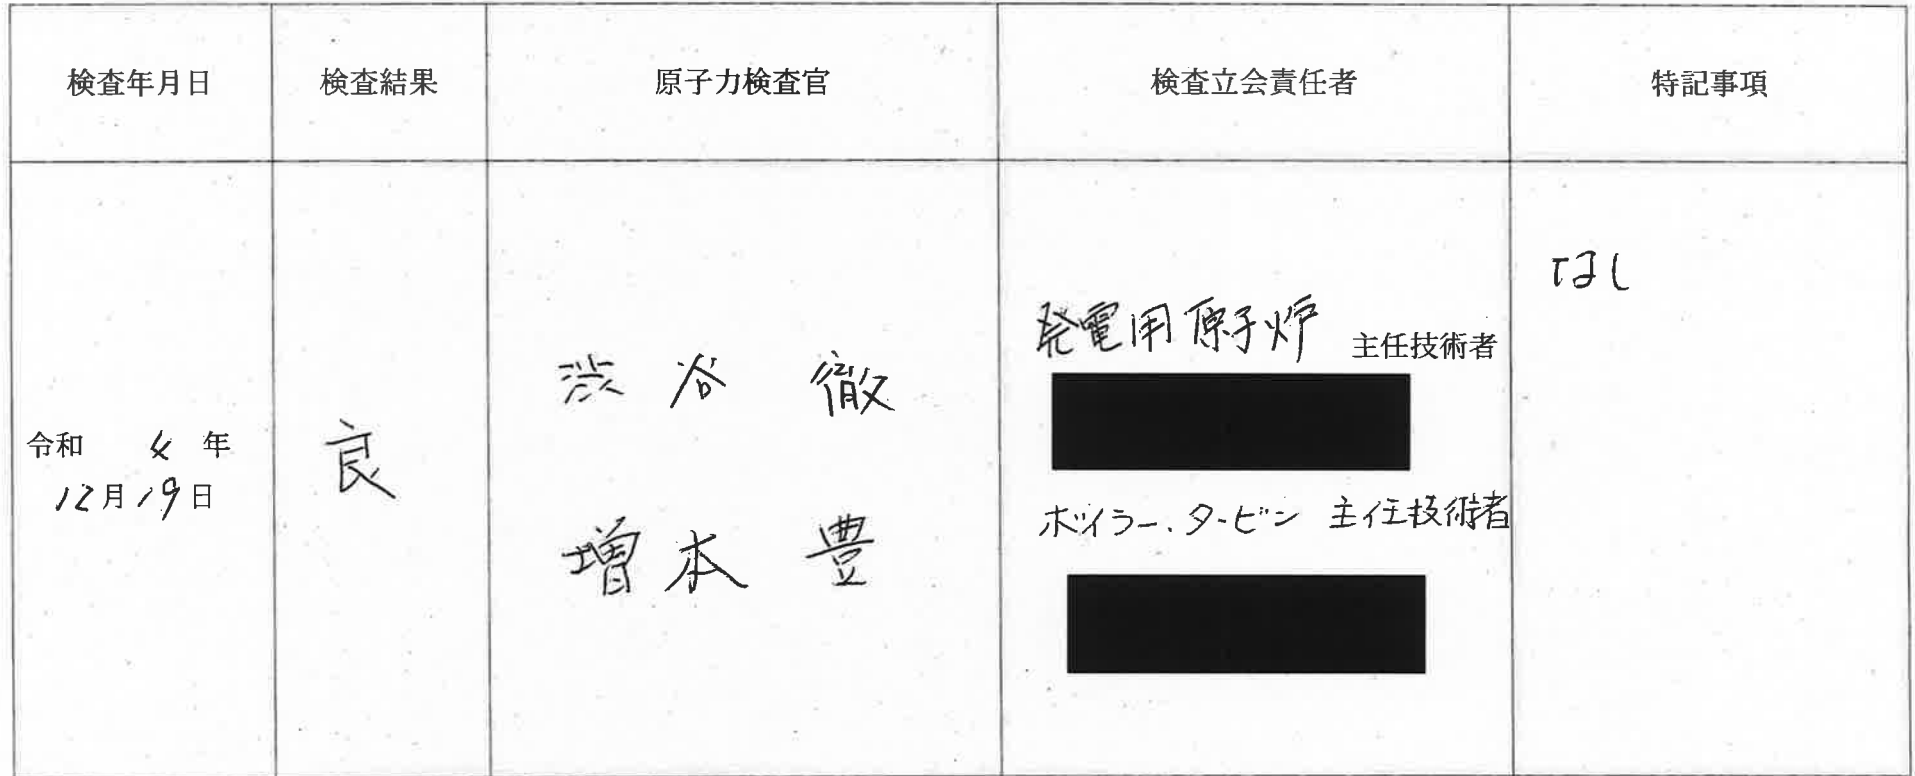 検査年月日 検査結果 原子力検査官 検査立会責任者 特記事項
令和 4 年
12月19日
良
渋谷 徹
増本 豊
発電用原子炉 主任技術者
ボイラー・タービン 主任技術者
なし